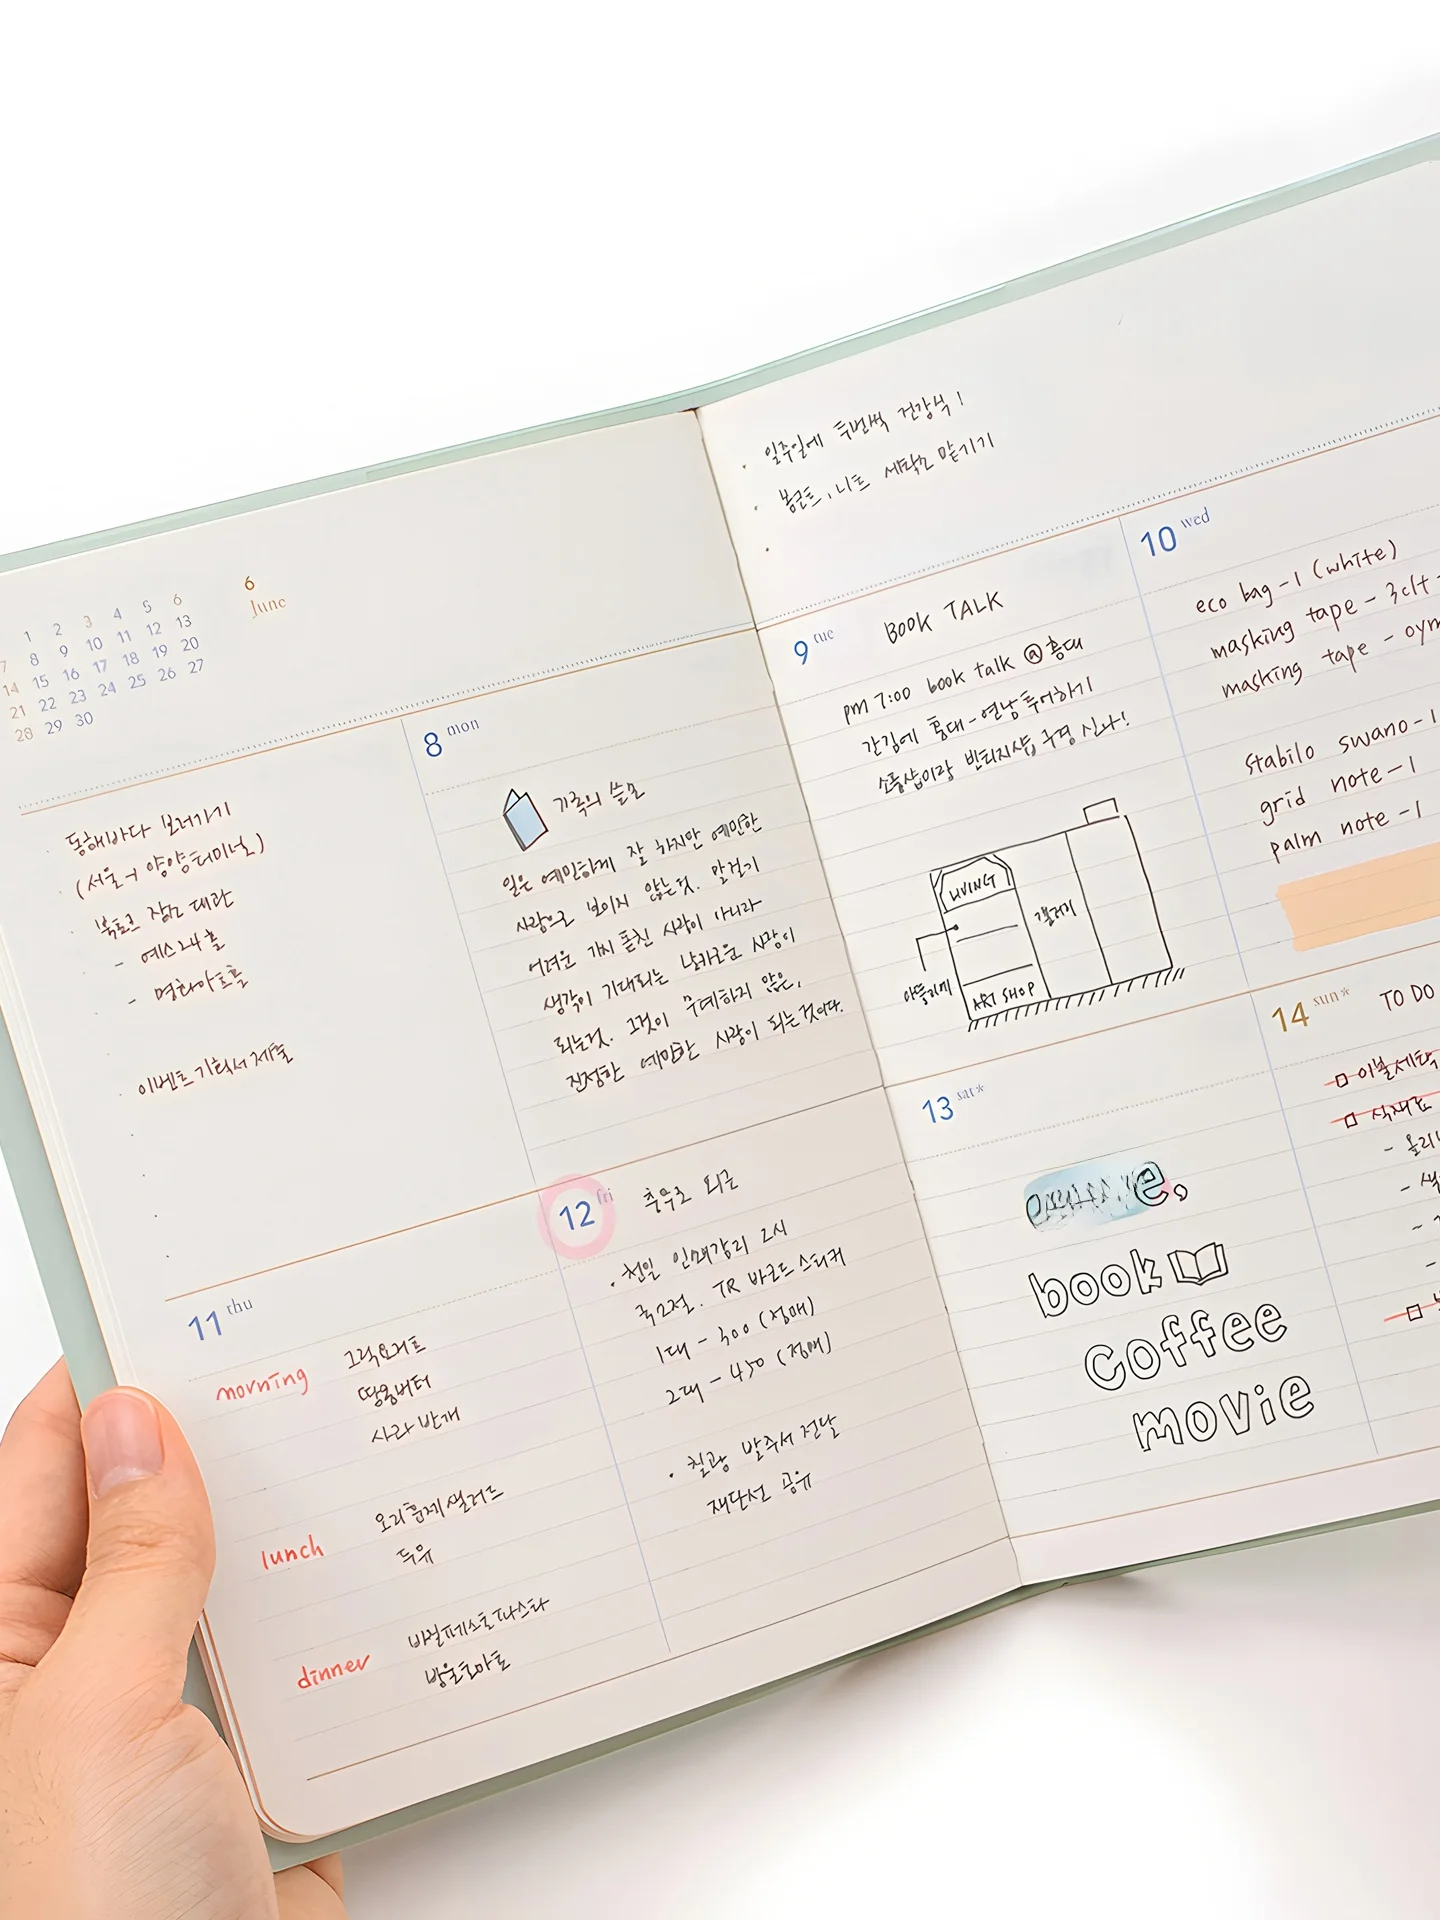 6
June
1 2 3 4 5 6
7 8 9 10 11 12 13
14 15 16 17 18 19 20
21 22 23 24 25 26 27
28 29 30
동해바다 보러가기
(서울→양양터미널)
북토크 장소 대관
- 예스24홀
- 명화아트홀
이벤트 기획서 제출
8 mon
기록의 쓸모
일은 예민하게 잘 하지만 예민한
사람으로 보이지 않는것. 말걸기
어려운 가시 돋친 사람이 아니라
생각이 기대되는 날카로운 사람이
되는것. 그것이 무례하지 않은,
진정한 예민한 사람이 되는것이다.
11 thu
morning 그릭요거트
땅콩버터
사과 반개
lunch 오리훈제샐러드
두유
dinner 바질페스토파스타
방울토마토
12 fri 충무로 외근
· 천일 인쇄감리 2시
국2절. TR 바코드스티커
1대 - 300 (정매)
2대 - 450 (정매)
· 칠광 발주서 전달
재단선 공유
· 일주일에 두번씩 건강식!
· 봄코트, 니트 세탁소 맡기기
9 tue BOOK TALK
pm 7:00 book talk @홍대
간김에 홍대-연남투어하기
소품샵이랑 빈티지샵 구경 신나!
LIVING
갤러리
아뜰리에
ART SHOP
10 wed
eco bag - 1 (white)
masking tape - 3
masking tape -
stabilo swano - 1
grid note - 1
palm note - 1
13 sat*
book
coffee
movie
14 sun* TO DO
□ 이불세탁
□ 식재료